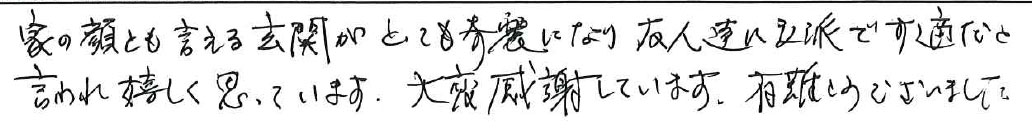 家の顔とも言える玄関がとても奇麗になり友人達に立派ですo適だと
言われ嬉しく思っています. 大変感謝しています. 有難とうございました.